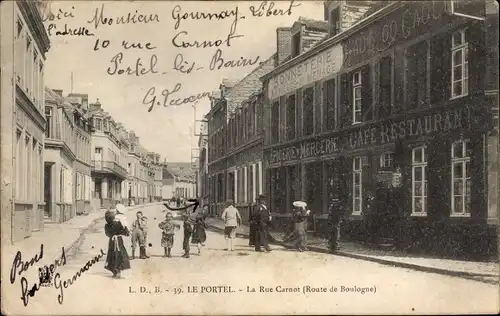 Voici Monsieur Gournay Libert
l'adresse 10 rue Carnot
Portel-lès-Bains
Bons
baisers
Germaine
ÉPICERIE MERCERIE CAFÉ RESTAURANT
L. D., B. - 39. LE PORTEL. - La Rue Carnot (Route de Boulogne)